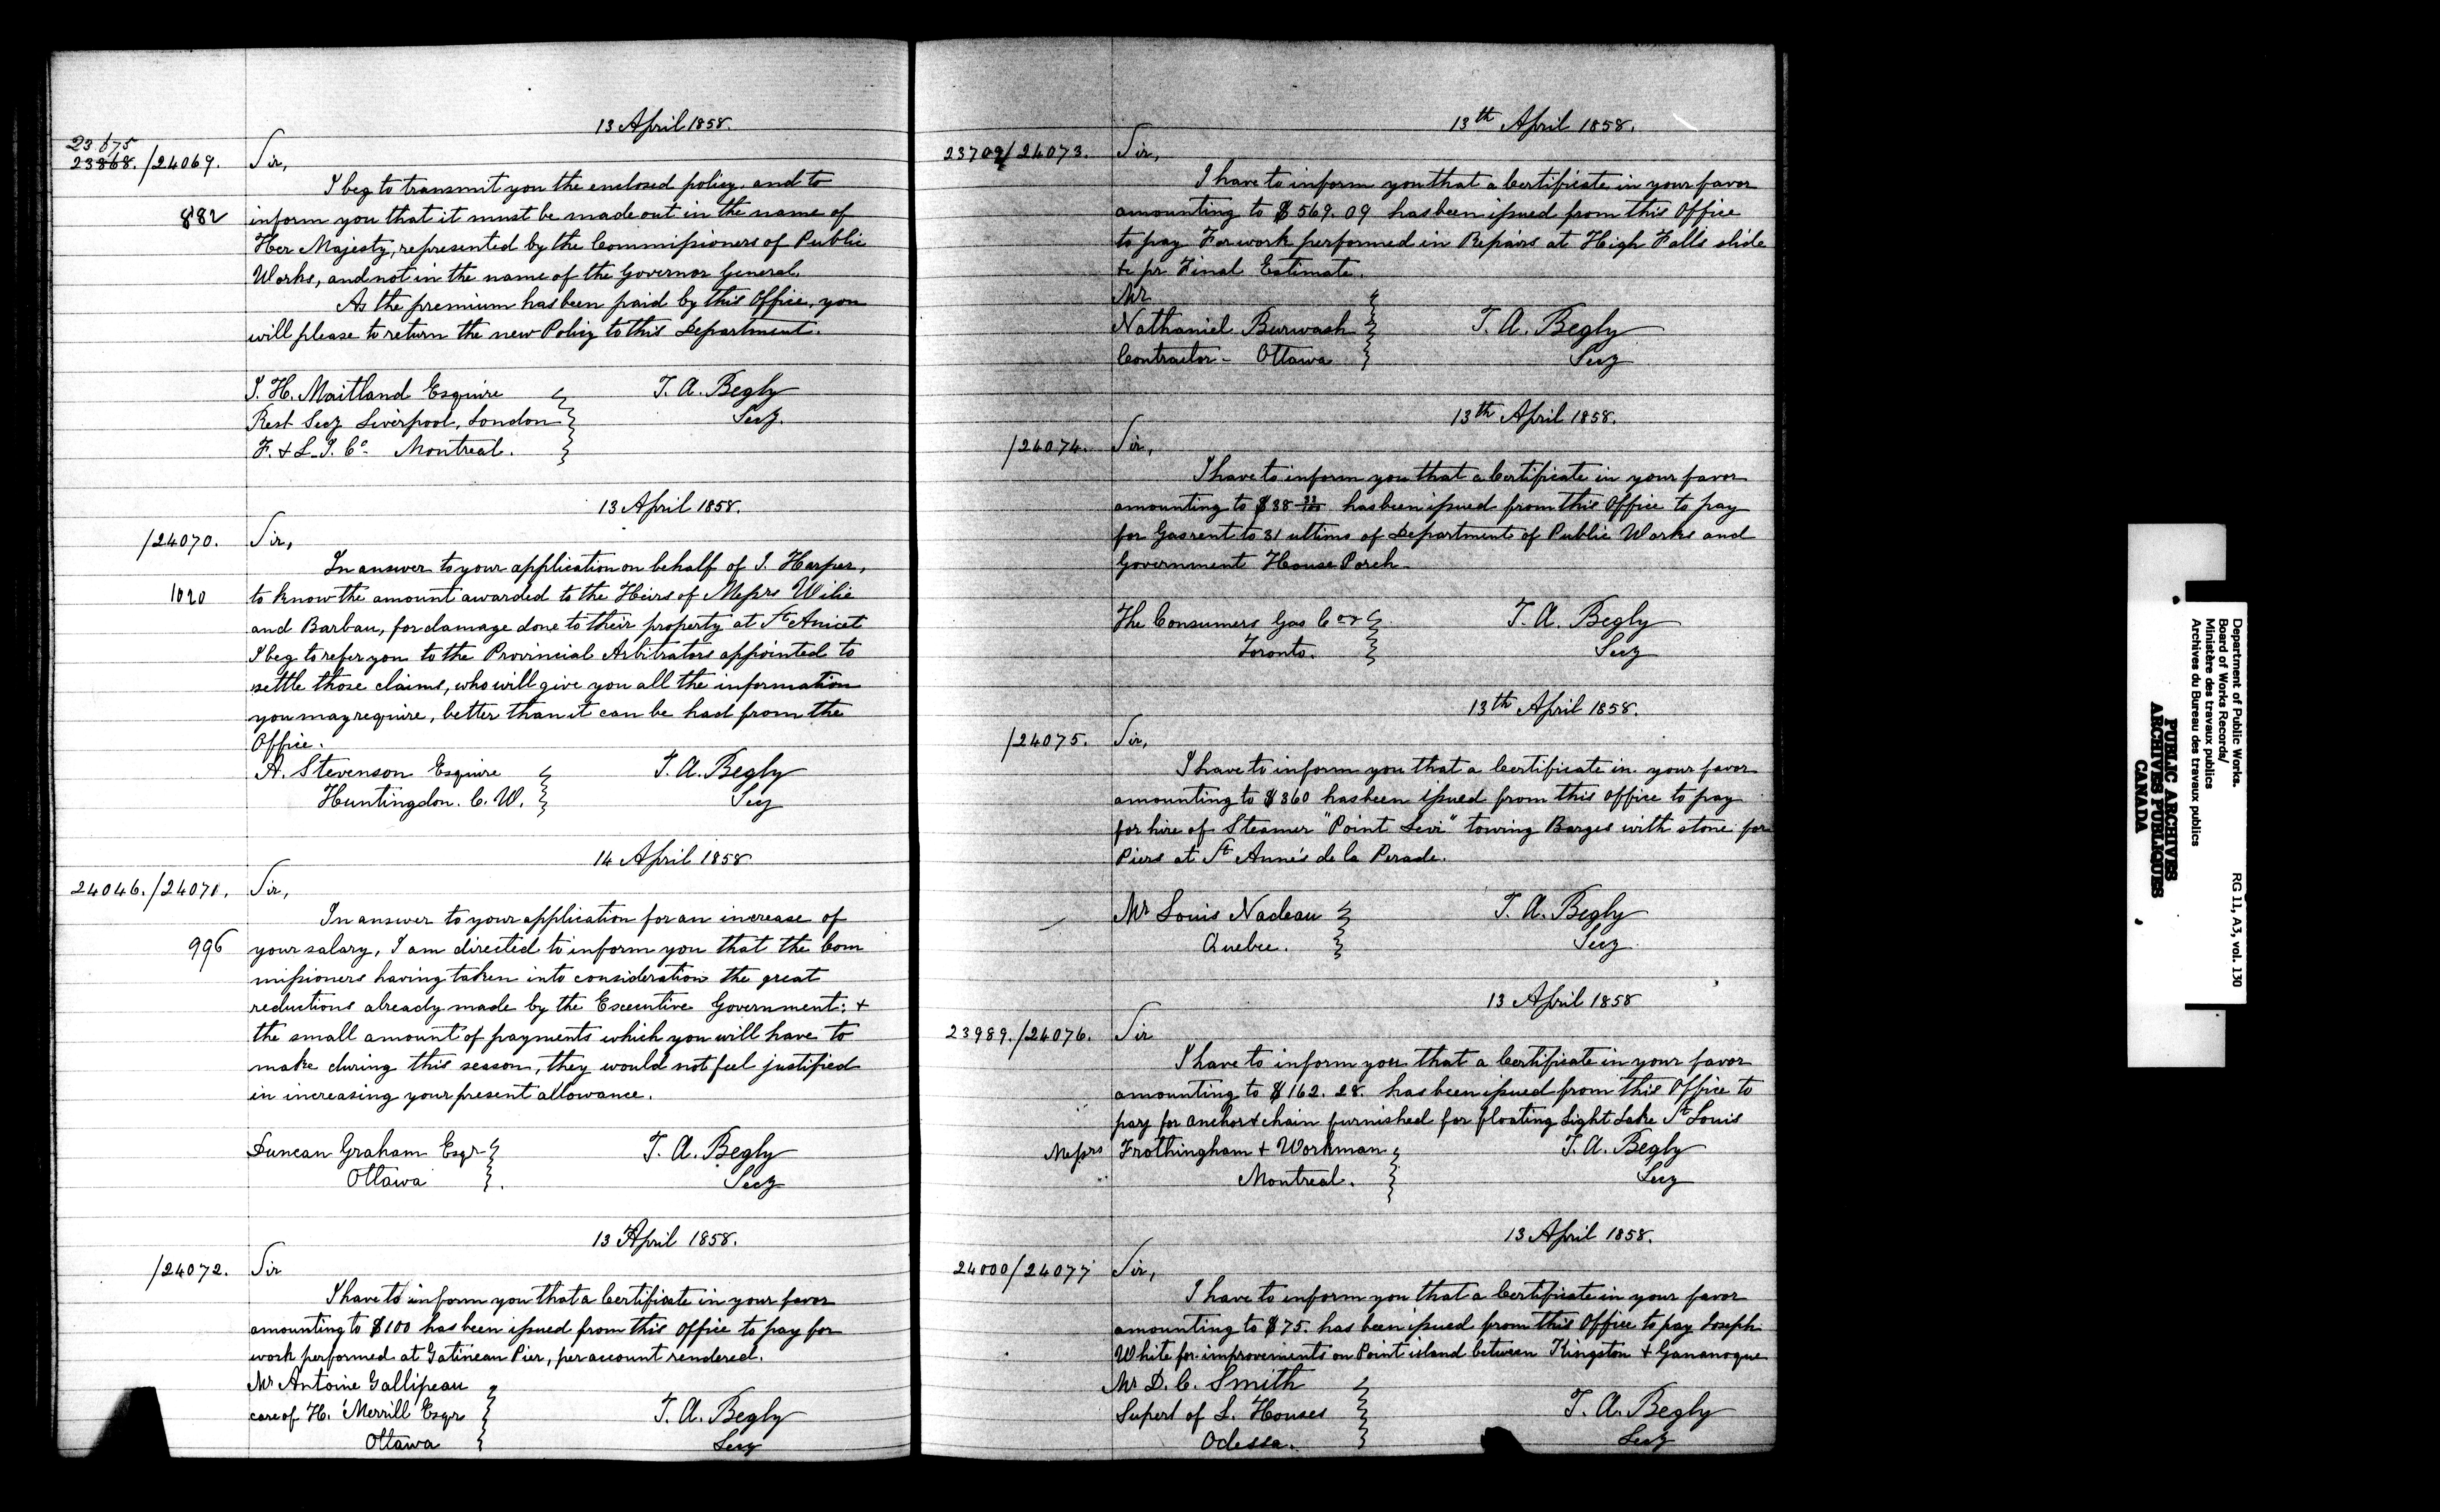 13 April 1858.
23675
23868. /24069. Sir,
I beg to transmit you the enclosed policy, and to
882 inform you that it must be made out in the name of
Her Majesty, represented by the Commissioners of Public
Works, and not in the name of the Governor General.
As the premium has been paid by this Office, you
will please to return the new Policy to this Department.
J. H. Maitland Esquire T. A. Begly
Rest Secy Liverpool, London Secy.
F. & L. I. Co. Montreal.
13 April 1858.
/24070. Sir,
In answer to your application on behalf of J. Harper,
1020 to know the amount awarded to the Heirs of Messrs Wilie
and Barbau, for damage done to their property at St Anicet
I beg to refer you to the Provincial Arbitrators appointed to
settle those claims, who will give you all the information
you may require, better than it can be had from the
Office.
A. Stevenson Esquire T. A. Begly
Huntingdon. C. W. Secy
14 April 1858
24046. /24071. Sir,
In answer to your application for an increase of
996 your salary, I am directed to inform you that the Com
missioners having taken into consideration the great
reductions already made by the Executive Government; &
the small amount of payments which you will have to
make during this season, they would not feel justified
in increasing your present allowance.
Duncan Graham Esqr T. A. Begly
Ottawa Secy
13 April 1858.
/24072. Sir
I have to inform you that a Certificate in your favor
amounting to $100 has been issued from this Office to pay for
work performed at Gatineau Pier, per account rendered.
Mr Antoine Gallipeau
care of H. Merrill Esqr T. A. Begly
Ottawa Secy
13th April 1858.
23709/24073. Sir,
I have to inform you that a Certificate in your favor
amounting to $569.09 has been issued from this Office
to pay For work performed in Repairs at High Falls slide
&c pr Final Estimate.
Mr
Nathaniel Burwash T. A. Begly
Contractor - Ottawa Secy
13th April 1858.
/24074. Sir,
I have to inform you that a Certificate in your favor
amounting to $38 33/100 has been issued from this Office to pay
for Gas rent to 31 ultimo of Department of Public Works and
Government House Porch.
The Consumers Gas Coy T. A. Begly
Toronto. Secy
13th April 1858.
/24075. Sir,
I have to inform you that a Certificate in your favor
amounting to $360 has been issued from this Office to pay
for hire of Steamer "Point Levi" towing Barges with stone for
Piers at St Anne's de la Perade.
Mr Louis Nadeau T. A. Begly
Quebec. Secy
13 April 1858
23989. /24076. Sir
I have to inform you that a Certificate in your favor
amounting to $162.28. has been issued from this Office to
pay for anchor & chain furnished for floating Light Lake St Louis
Messrs Frothingham & Workman T. A. Begly
Montreal. Secy
13 April 1858.
24000/24077 Sir,
I have to inform you that a Certificate in your favor
amounting to $75. has been issued from this Office to pay Joseph
White for improvements on Point island between Kingston & Gananoque
Mr D. C. Smith
Supert of L. Houses T. A. Begly
Odessa. Secy
Department of Public Works.
Board of Works Records/
Ministère des travaux publics
Archives du Bureau des travaux publics
RG 11, A3, vol. 130
PUBLIC ARCHIVES
ARCHIVES PUBLIQUES
CANADA